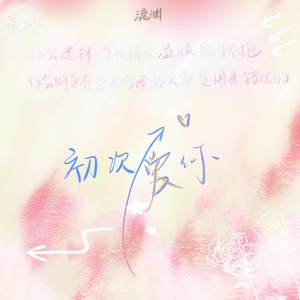 最终
你会遇到一个长情又温暖的怀抱
你会明白有些不合适的人就是用来错过的
初次爱你